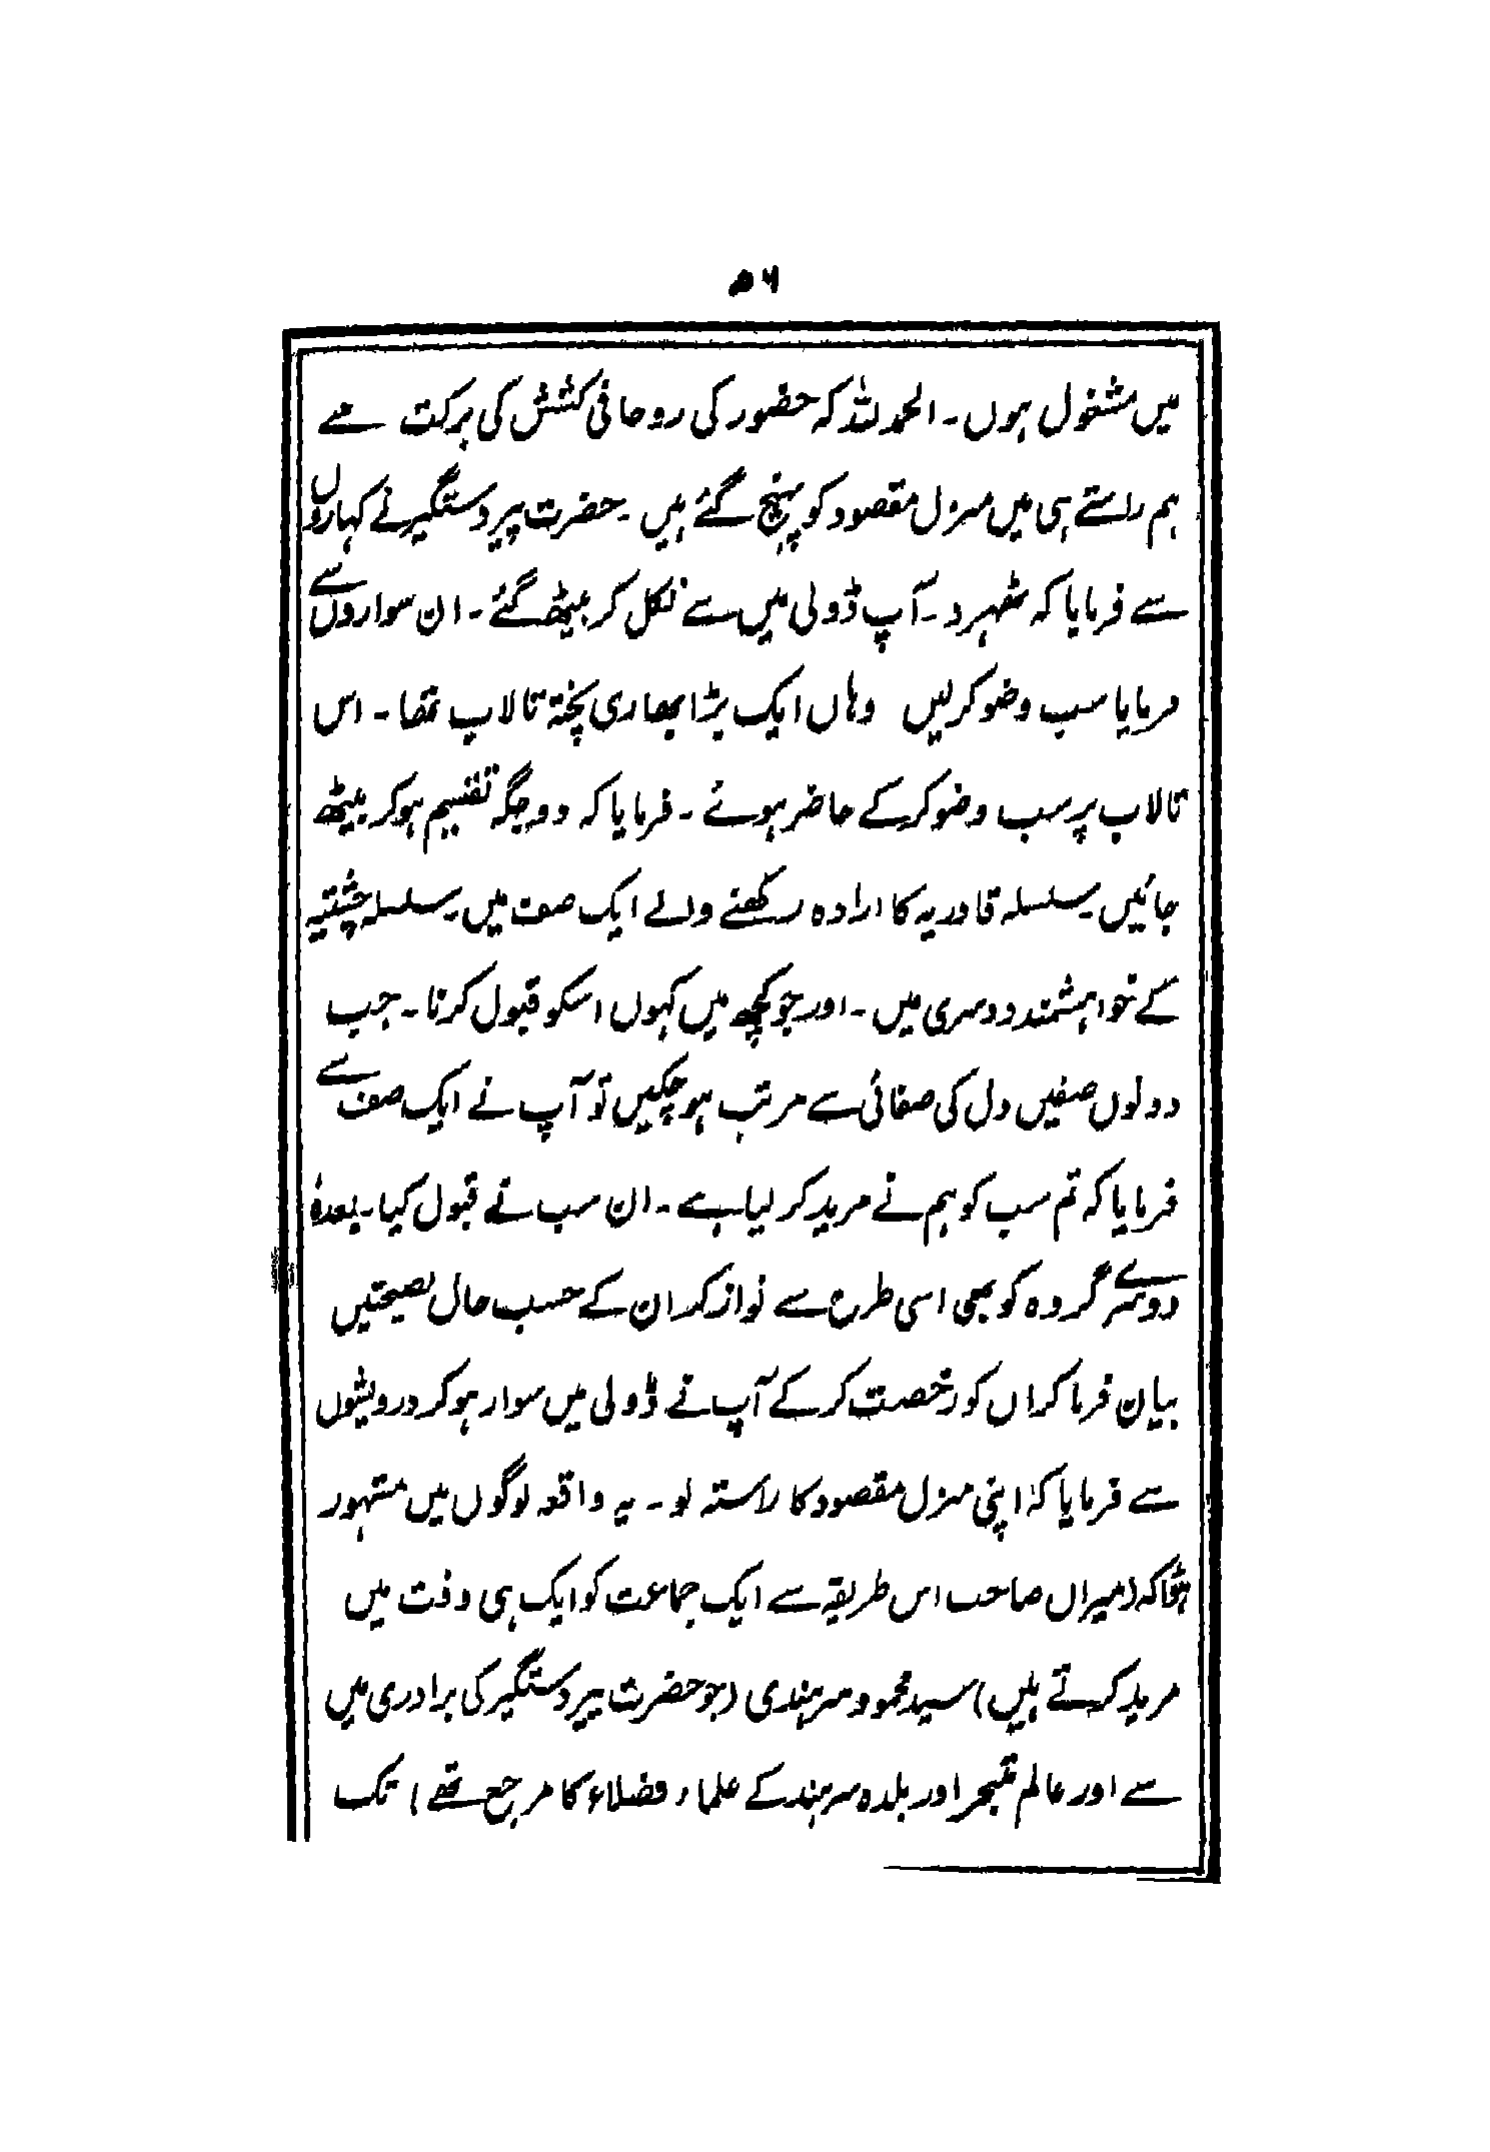 ۵۶
میں مشغول ہوں۔ الحمد للہ کہ حضور کی روحانی کشش کی برکت سے
ہم راستے ہی میں منزل مقصود کو پہنچ گئے ہیں۔ حضرت پیر دستگیر نے کہاروں
سے فرمایا کہ ٹھہرو۔ آپ ڈولی میں سے نکل کر بیٹھ گئے۔ ان سواروں سے
فرمایا سب وضو کر لیں وہاں ایک بڑا بھاری پختہ تالاب تھا۔ اس
تالاب پر سب وضو کر کے حاضر ہوئے۔ فرمایا کہ دو جگہ تقسیم ہو کر بیٹھ
جائیں۔ سلسلہ قادریہ کا ارادہ رکھنے والے ایک صف میں۔ سلسلہ چشتیہ
کے خواہشمند دوسری میں۔ اور جو کچھ میں کہوں اسکو قبول کرنا۔ جب
دونوں صفیں دل کی صفائی سے مرتب ہو چکیں تو آپ نے ایک صف سے
فرمایا کہ تم سب کو ہم نے مرید کر لیا ہے۔ ان سب نے قبول کیا۔ بعدہٗ
دوسرے گروہ کو بھی اسی طرح سے نواز کر ان کے حسب حال نصیحتیں
بیان فرما کر ان کو رخصت کر کے آپ نے ڈولی میں سوار ہو کر درویشوں
سے فرمایا کہ اپنی منزل مقصود کا راستہ لو۔ یہ واقعہ لوگوں میں مشہور
ہوا کہ (میراں صاحب اس طریقہ سے ایک جماعت کو ایک ہی وقت میں
مرید کرتے ہیں) سید محمود سرہندی (جو حضرت پیر دستگیر کی برادری میں
سے اور عالم متبحر اور بلدہ سرہند کے علماء و فضلاء کا مرجع تھے) تک